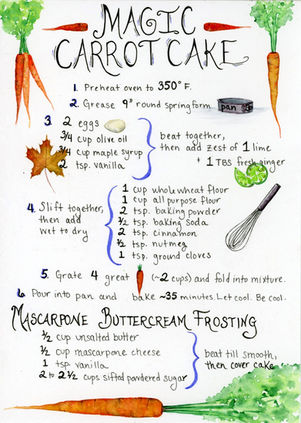 MAGIC
CARROT CAKE
1. Preheat oven to 350° F.
2. Grease 9" round springform pan
3. 2 eggs
3/4 cup olive oil
3/4 cup maple syrup
2 tsp. vanilla
beat together,
then add zest of 1 lime
+ 1 TBS fresh ginger
4. Sift together,
then add
wet to dry
1 cup whole wheat flour
1 cup all purpose flour
2 tsp. baking powder
1/2 tsp. baking soda
2 tsp. cinnamon
1/2 tsp. nutmeg
1 tsp. ground cloves
5. Grate 4 great (~2 cups) and fold into mixture.
6. Pour into pan and bake ~35 minutes. Let cool. Be cool.
MASCARPONE BUTTERCREAM FROSTING
1/2 cup unsalted butter
1/2 cup mascarpone cheese
1 tsp vanilla
2 to 2 1/2 cups sifted powdered sugar
beat till smooth,
then cover cake